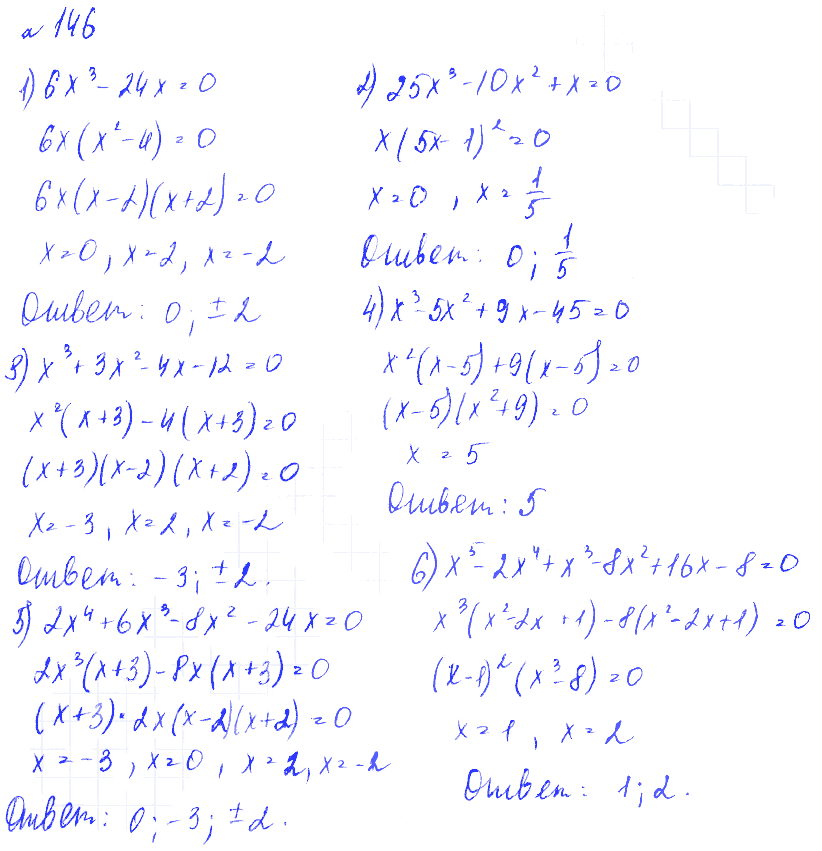 № 146
1) 6x³ - 24x = 0
6x(x² - 4) = 0
6x(x - 2)(x + 2) = 0
x = 0, x = 2, x = -2
Ответ: 0; ±2
2) 25x³ - 10x² + x = 0
x(5x - 1)² = 0
x = 0, x = 1/5
Ответ: 0; 1/5
3) x³ + 3x² - 4x - 12 = 0
x²(x + 3) - 4(x + 3) = 0
(x + 3)(x - 2)(x + 2) = 0
x = -3, x = 2, x = -2
Ответ: -3; ±2.
4) x³ - 5x² + 9x - 45 = 0
x²(x - 5) + 9(x - 5) = 0
(x - 5)(x² + 9) = 0
x = 5
Ответ: 5
5) 2x⁴ + 6x³ - 8x² - 24x = 0
2x³(x + 3) - 8x(x + 3) = 0
(x + 3) · 2x(x - 2)(x + 2) = 0
x = -3, x = 0, x = 2, x = -2
Ответ: 0; -3; ±2.
6) x⁵ - 2x⁴ + x³ - 8x² + 16x - 8 = 0
x³(x² - 2x + 1) - 8(x² - 2x + 1) = 0
(x - 1)²(x³ - 8) = 0
x = 1, x = 2
Ответ: 1; 2.